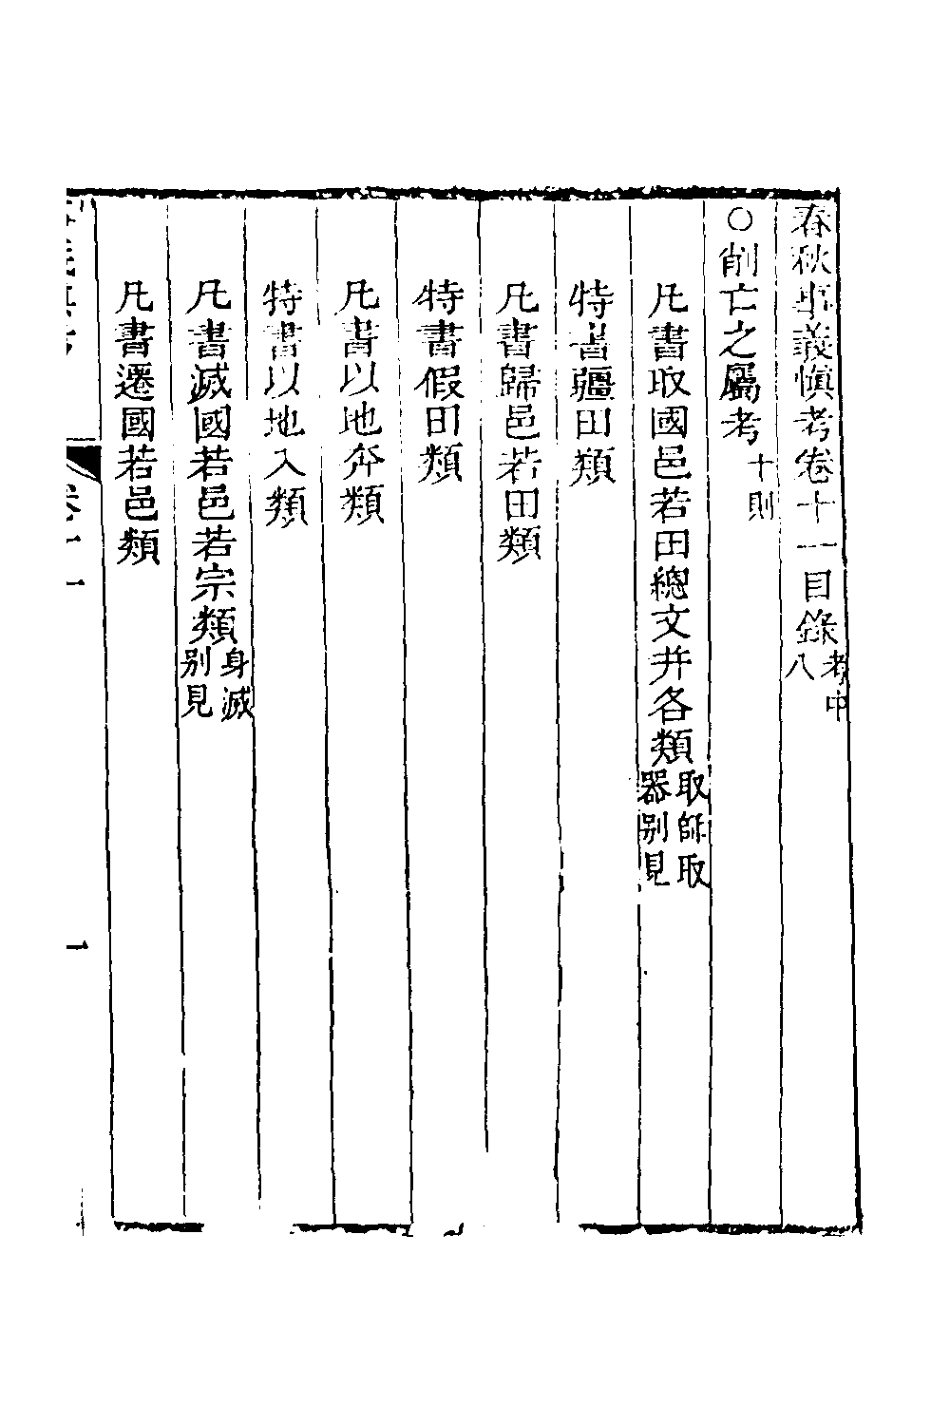 春秋事義慎考卷十一目錄考中八
○削亡之屬考十則
凡書取國邑若田總文并各類取師取器别見
特書疆田類
凡書歸邑若田類
特書假田類
凡書以地奔類
特書以地入類
凡書滅國若邑若宗類身滅别見
凡書遷國若邑類
卷十一
一